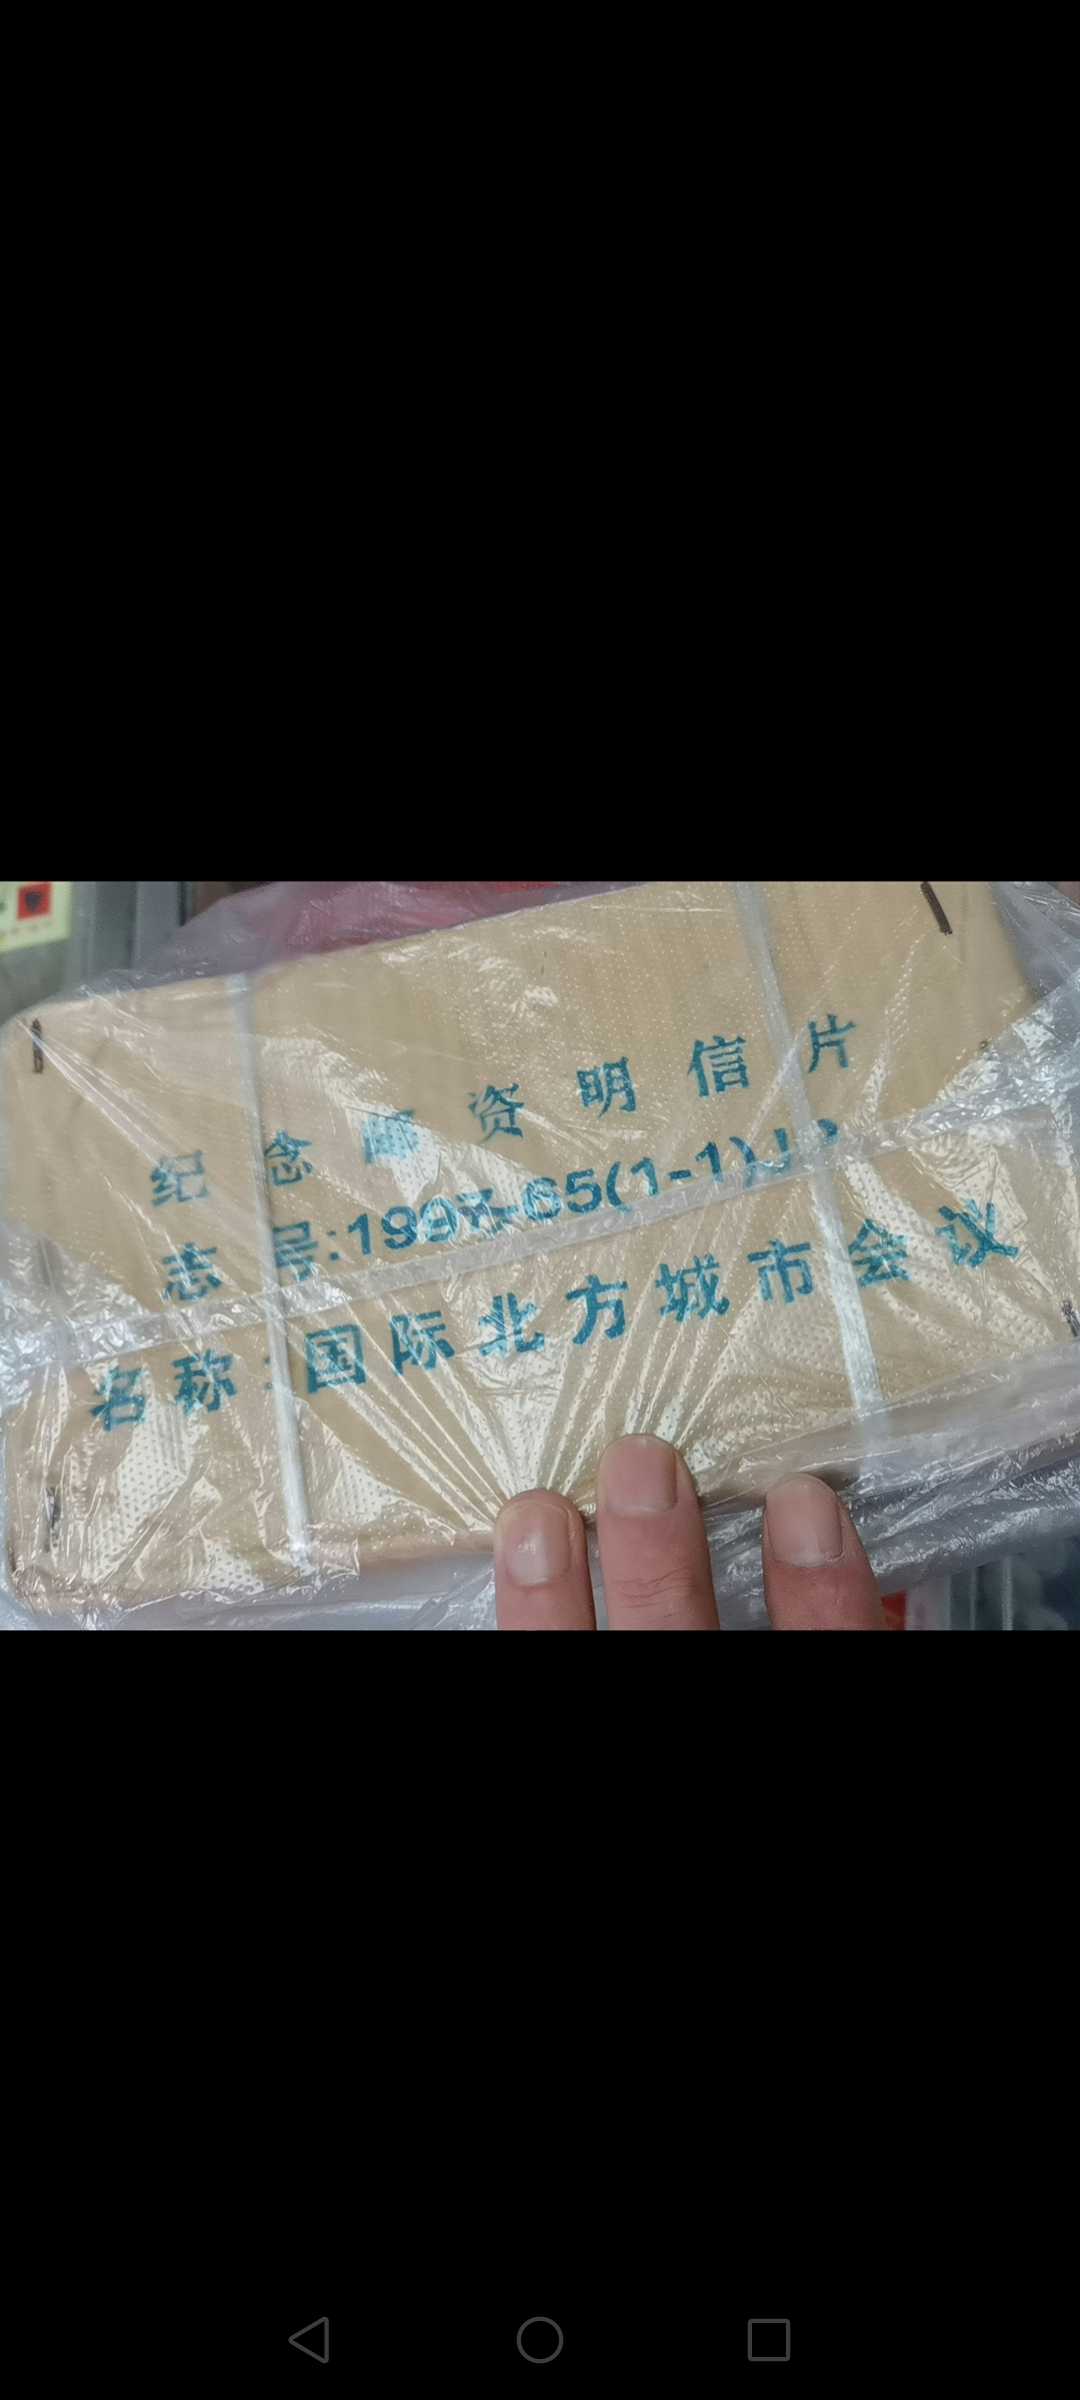 纪念邮资明信片
志号:1997-65(1-1)JP
名称:国际北方城市会议